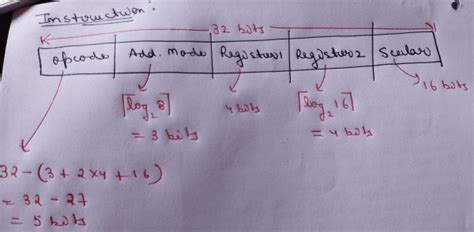 Instruction:
32 bits
Opcode | Add. Mode | Register1 | Register2 | Scalar
⌈log₂ 8⌉ 4 bits ⌈log₂ 16⌉ 16 bits
= 3 bits = 4 bits
32 - (3 + 2×4 + 16)
= 32 - 27
= 5 bits